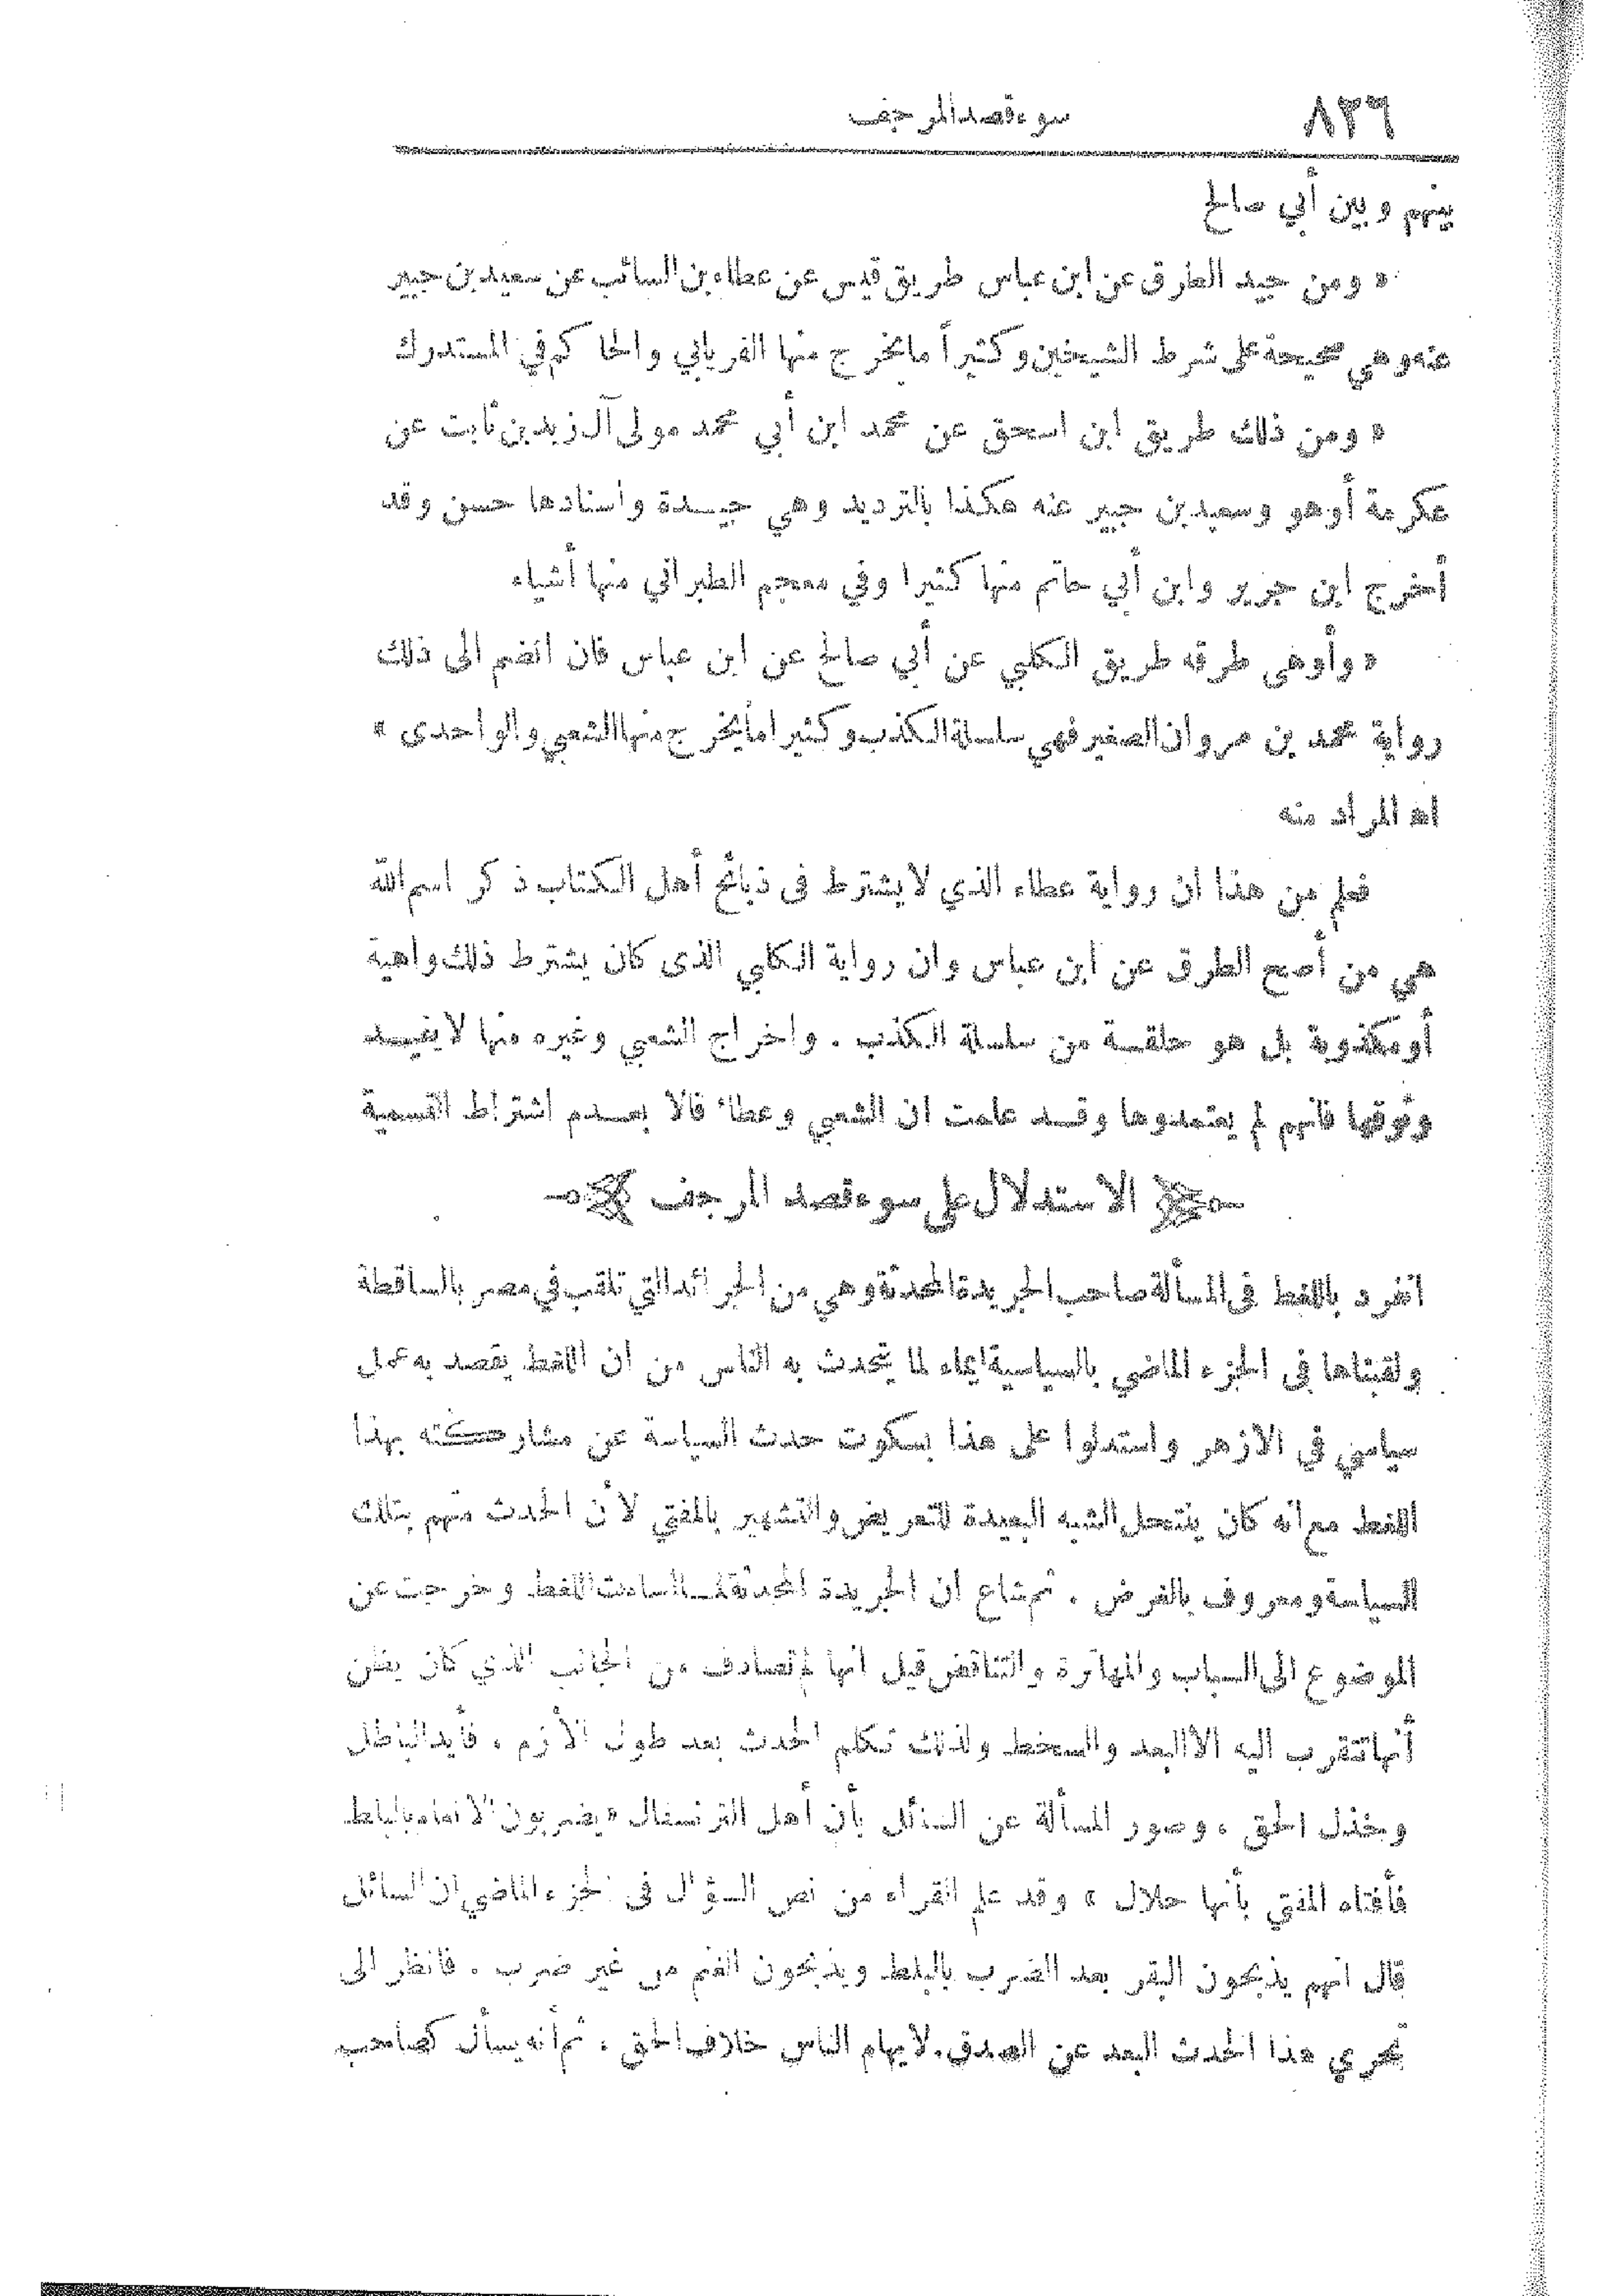 ٨٣٦
سوء قصد المرجف
بينهم وبين أبي صالح
« ومن جيد الطرق عن ابن عباس طريق قيس عن عطاء بن السائب عن سعيد بن جبير
عنه وهي صحيحة على شرط الشيخين وكثيراً ما يخرج منها الفريابي والحاكم في المستدرك
« ومن ذلك طريق ابن اسحق عن محمد ابن أبي محمد مولى آل زيد بن ثابت عن
عكرمة أو هو وسعيد بن جبير عنه هكذا بالترديد وهي جيدة واسنادها حسن وقد
أخرج ابن جرير وابن أبي حاتم منها كثيرا وفي معجم الطبراني منها أشياء
« وأوهى طرقه طريق الكلبي عن أبي صالح عن ابن عباس فان انضم الى ذلك
رواية محمد بن مروان الصغير فهي سلسلة الكذب وكثيرا ما يخرج منها الشعبي والواحدى »
اه المراد منه
فعلم من هذا ان رواية عطاء الذي لا يشترط فى ذبائح أهل الكتاب ذكر اسم الله
هي من أصح الطرق عن ابن عباس وان رواية الكلبي الذى كان يشترط ذلك واهية
أو مكذوبة بل هو حلقة من سلسلة الكذب . واخراج الشعبي وغيره منها لا يفيد
وثوقها فانهم لم يعتمدوها وقد علمت ان الشعبي وعطاء قالا بعدم اشتراط التسمية
الاستدلال على سوء قصد المرجف
انفرد باللغط فى المسألة صاحب الجريدة المحدثة وهي من الجرائد التي تلقب في مصر بالساقطة
ولقبناها فى الجزء الماضي بالسياسية ايماء لما يتحدث به الناس من ان اللغط يقصد به عمل
سياسي في الازهر واستدلوا على هذا بسكوت حدث السياسة عن مشاركته بهذا
اللغط مع انه كان ينتحل الشبه البعيدة للتعريض والتشهير بالمفتي لأن الحدث متهم بتلك
السياسة ومعروف بالغرض . ثم شاع ان الجريدة المحدثة لما أساءت اللغط وخرجت عن
الموضوع الى السباب والمهاترة والتناقض قيل انها لم تصادف من الجانب الذي كان يظن
أنها تتقرب اليه الا البعد والسخط ولذلك تكلم الحدث بعد طول الأزم ، فأيد الباطل
وخذل الحق ، وصور المسألة عن السائل بأن أهل الترنسفال « يضربون الانعام بالبلط
فأفتاه المفتي بأنها حلال » وقد علم القراء من نص السؤال فى الجزء الماضي ان السائل
قال انهم يذبحون البقر بعد الضرب بالبلط ويذبحون الغنم من غير ضرب . فانظر الى
تحري هذا الحدث البعد عن الصدق . لايهام الناس خلاف الحق ، ثم أنه يسأل كصاحب